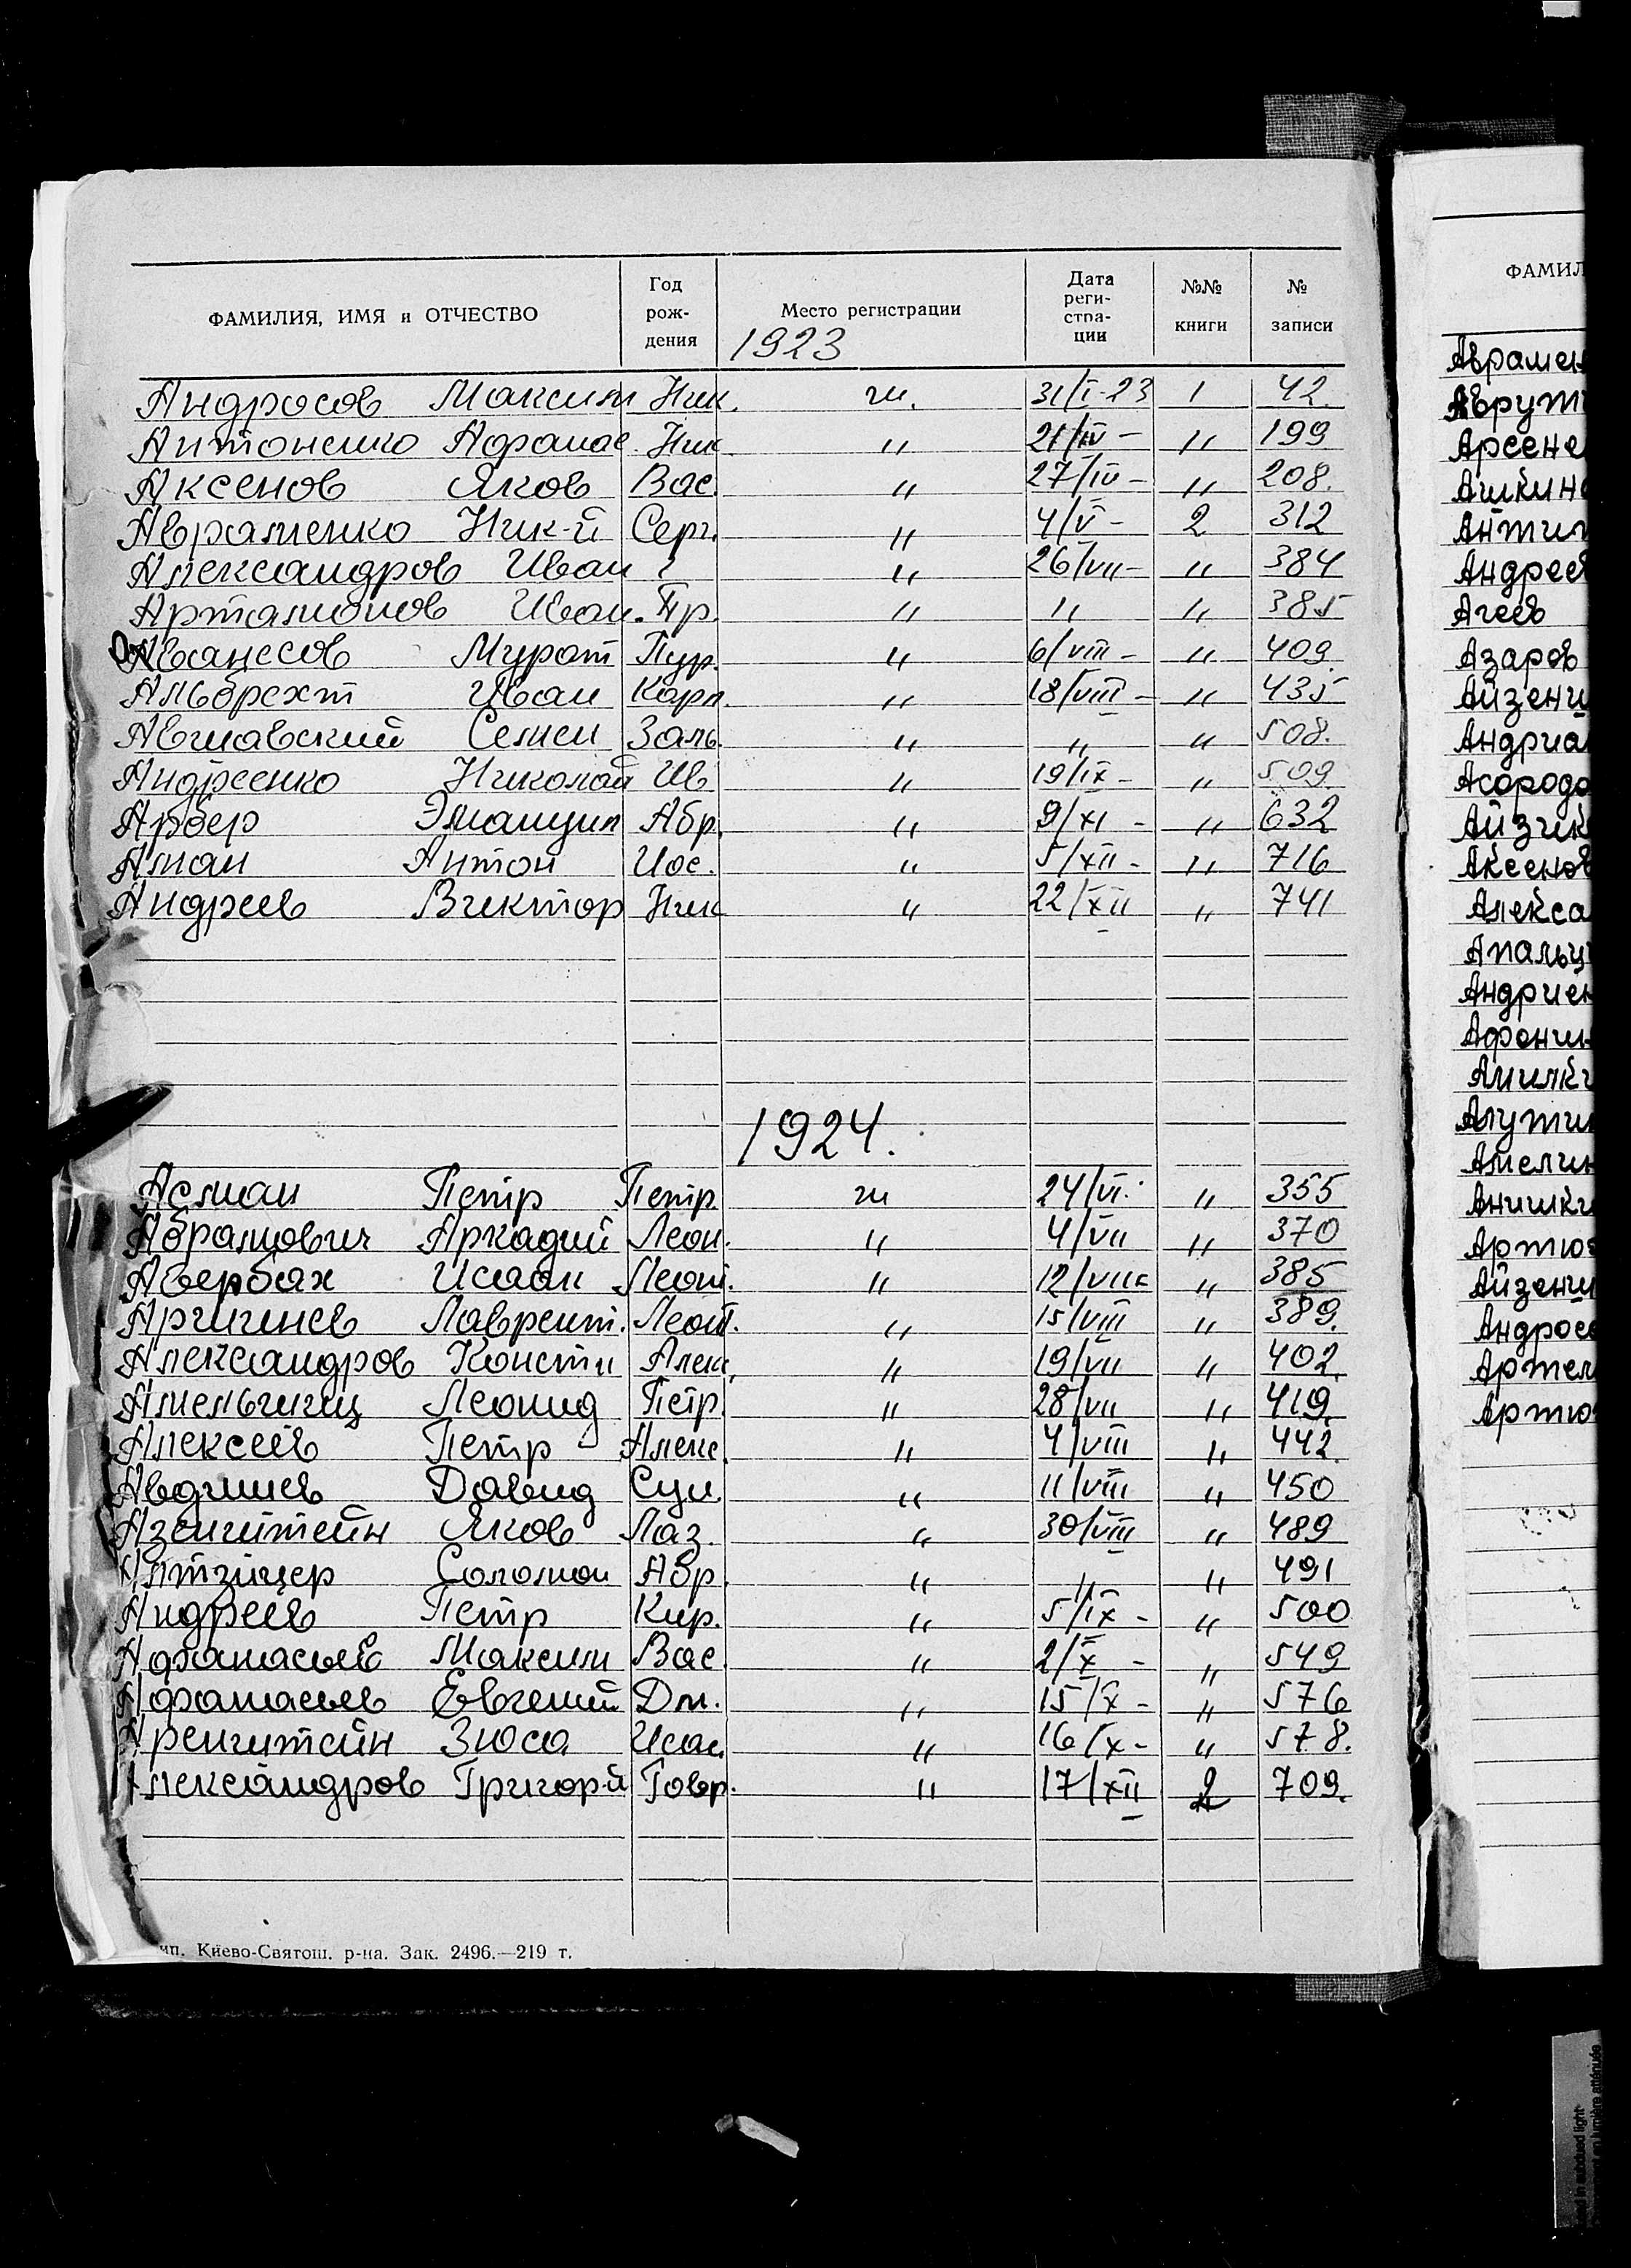 ФАМИЛИЯ, ИМЯ и ОТЧЕСТВО Год рож- дения Место регистрации Дата реги- стра- ции №№ книги № записи
1923
Андросов Максим Ник. ги. 31/I-23 1 42.
Антоненко Афанас. Ник. " 21/IV - " 199
Аксенов Яков Вас. " 27/IV - " 208.
Авраменко Ник-й Серг. " 4/V - 2 312
Александров Иван ? " 26/VII - " 384
Арталионов Иван. Пр. " " " 385
Аванесов Мурат Пур. " 6/VIII - " 409.
Альбрехт Иван Карл. " 18/VIII - " 435
Семен Заль. " " " 508.
Андреенко Николай Ив " 19/IX - " 509.
Арбер Эмануил Абр. " 9/XI - " 632
Аман Антон Иос. " 5/XII - " 716
Андреев Виктор Ник " 22/XII " 741
1924.
Асман Петр Петр. ги 24/VI. " 355
Абрамович Аркадий Леон. " 4/VII " 370
Авербах Исаак Леон. " 12/VII " 385
Лаврент. Леонт. " 15/VIII " 389.
Александров Констн Алек. " 19/VII " 402.
Амельчиц Леонид Петр. " 28/VII " 419.
Алексеев Петр Алекс. " 4/VIII " 442.
Авдишев Давид Сул. " 11/VIII " 450
Азенштейн Яков Лаз. " 30/VIII " 489
Альтзицер Соломон Абр. " " " 491
Андреев Петр Кир. " 5/IX - " 500
Афанасьев Максим Вас. " 2/X - " 549
Афанасьев Евгений Дм. " 15/X - " 576
Аренштейн Зюса Исак. " 16/X - " 578.
Александров Григор-й Гавр. " 17/XII 2 709.
ип. Киево-Святош. р-на. Зак. 2496.—219 т.
ФАМИЛ
Аврамен
Аврути
Арсене
Ашкин
Антип
Андрее
Агеев
Азаров
Айзенш
Андриа
Асородо
Айзик
Аксенов
Алекса
Апальц
Андриен
Афонин
Амилк
Алутин
Амелин
Анишки
Артю
Айзенш
Андросо
Артем
Артю